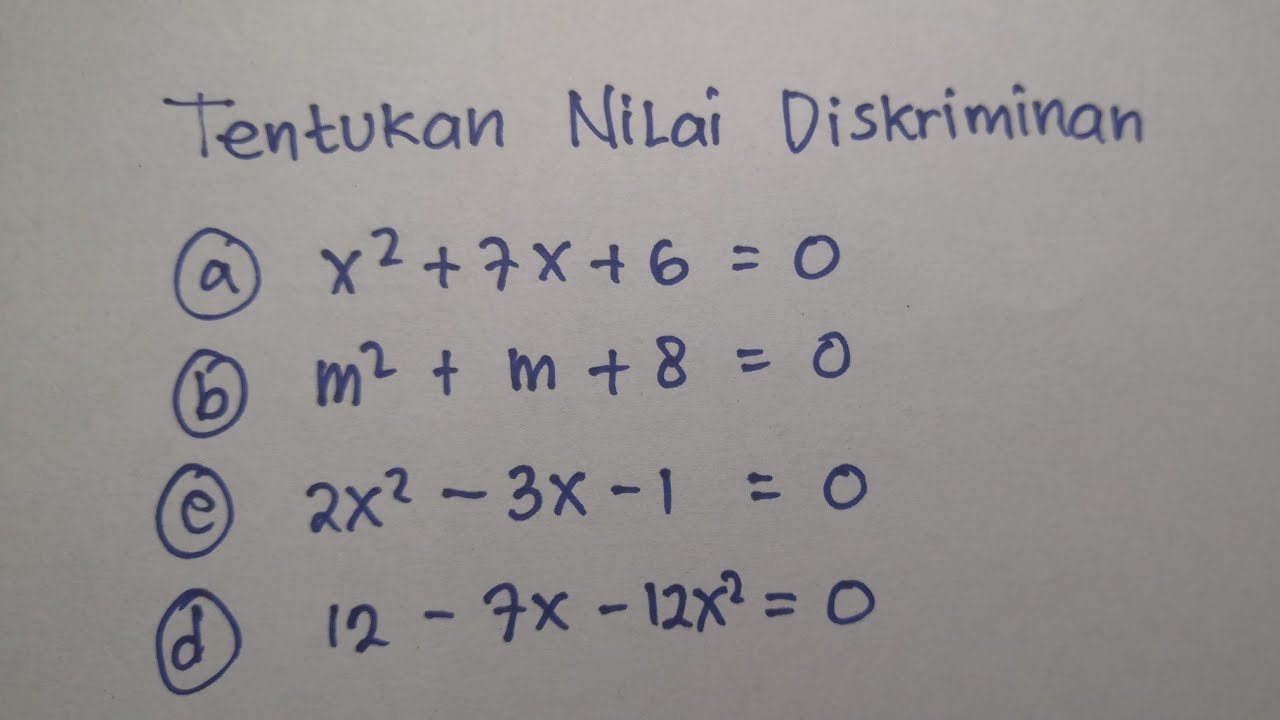 Tentukan Nilai Diskriminan
ⓐ x² + 7x + 6 = 0
ⓑ m² + m + 8 = 0
ⓔ 2x² - 3x - 1 = 0
ⓓ 12 - 7x - 12x² = 0